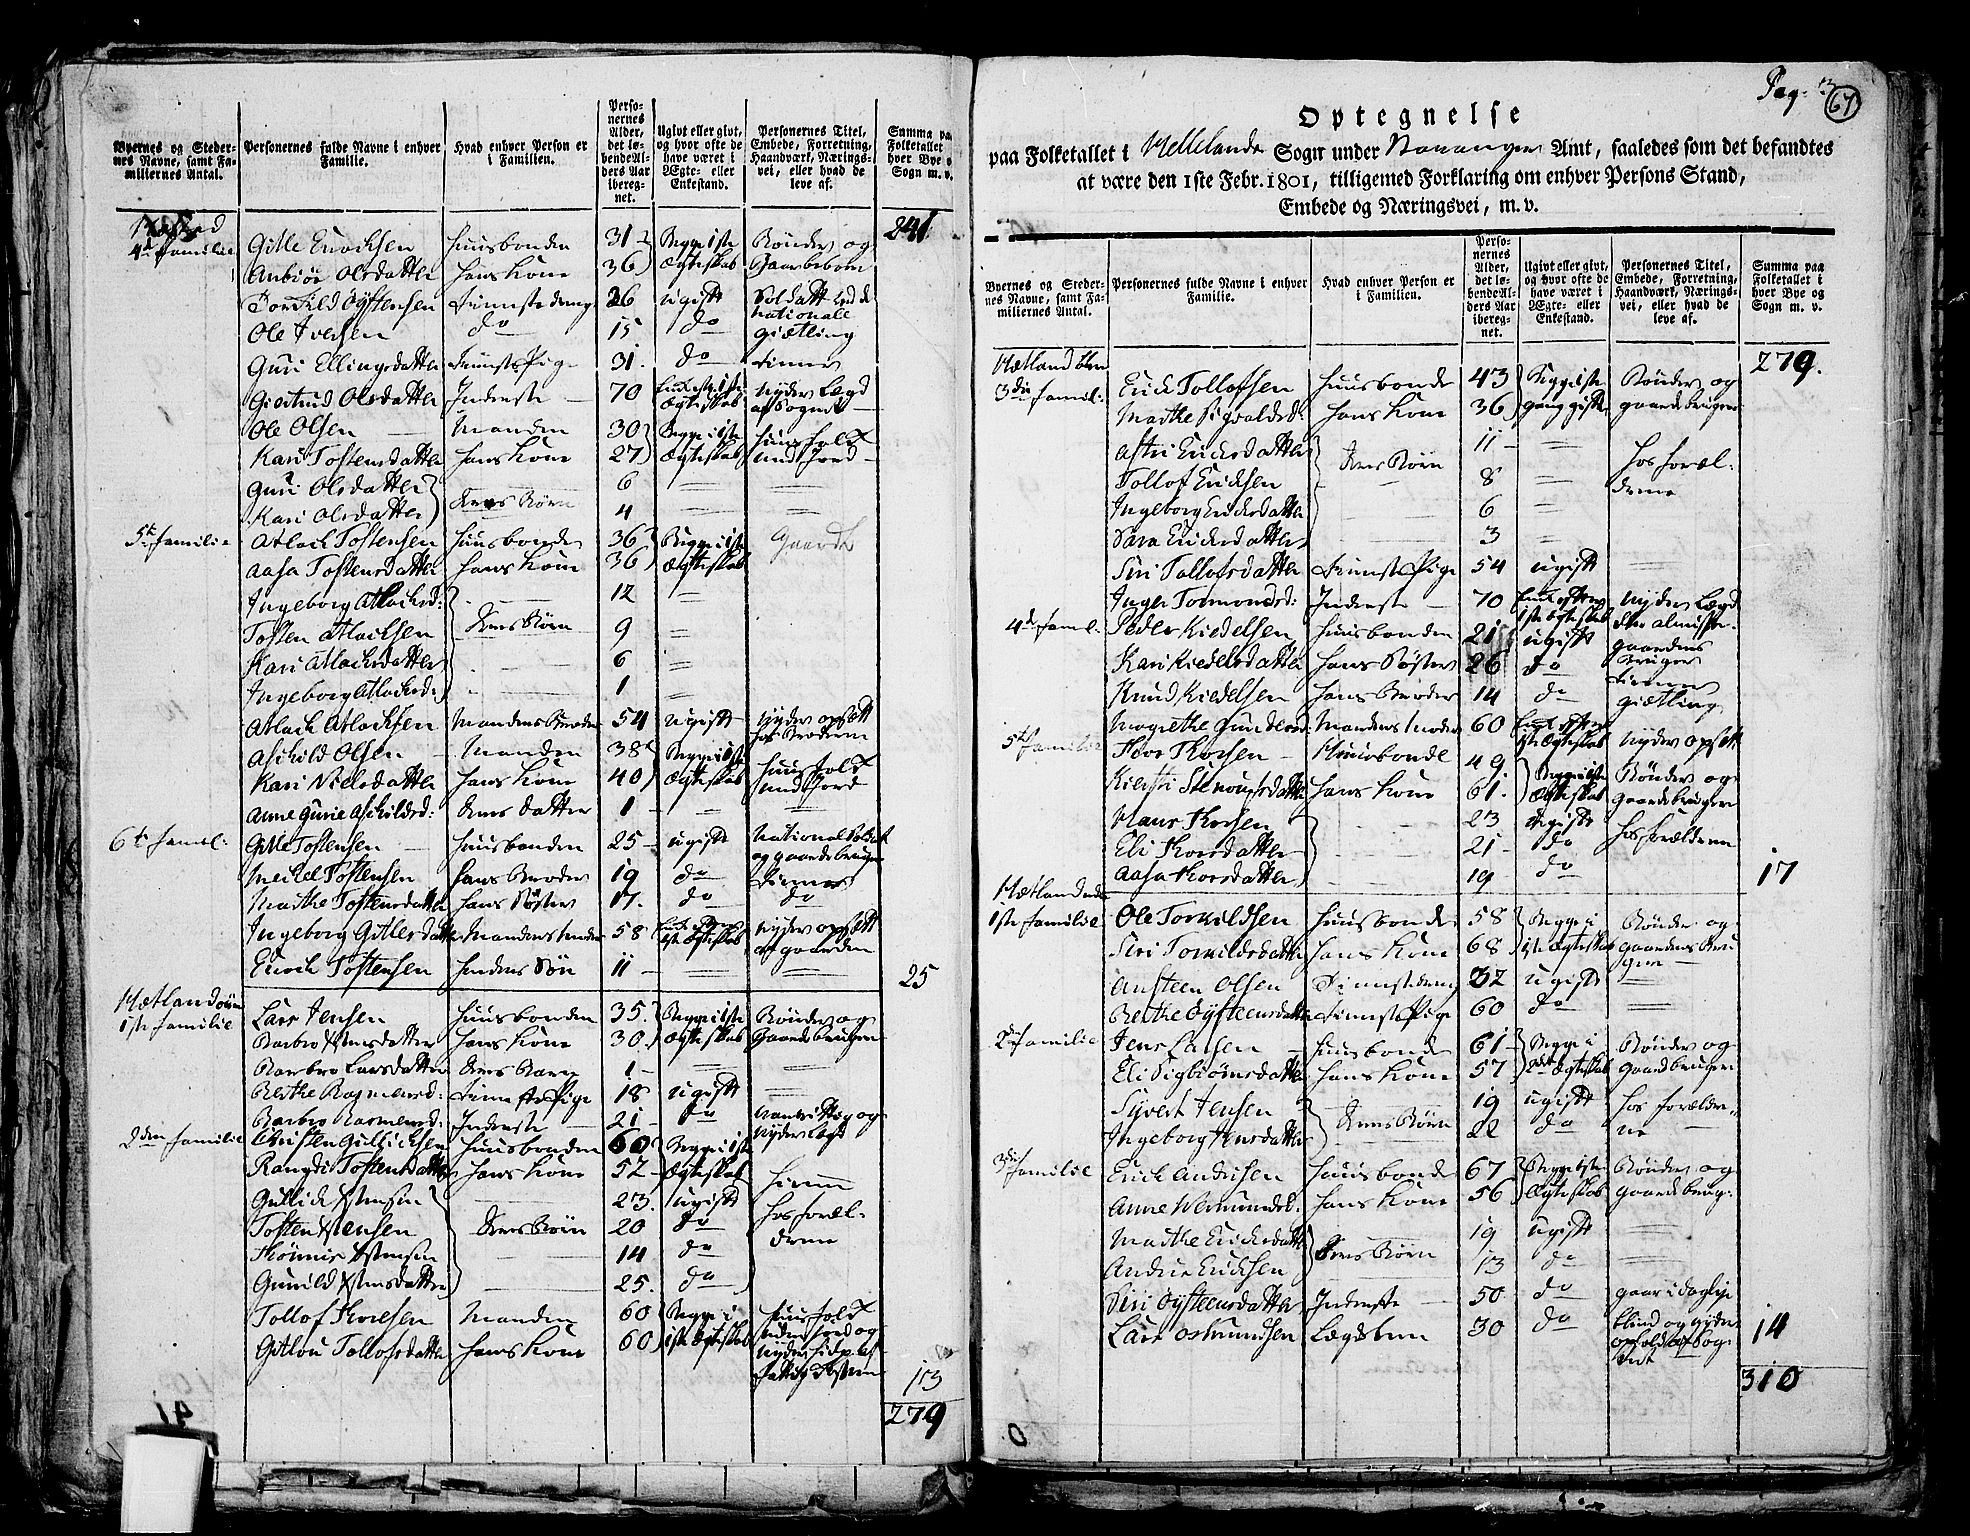 Byernes og Stedernes Navne, samt Familiernes Antal.
Personernes fulde Navne i enhver Familie.
Hvad enhver Person er i Familien.
Personernes Alder, det løbende Alders Aar iberegnet.
Ugivt eller givt, og hvor ofte de have været i Ægte- eller Enkestand.
Personernes Titel, Embede, Forretning, Haandværk, Næringsvei, eller hvad de leve af.
Summa paa Folketallet i hver Bye og Sogn m. v.
241
4de familie Gitle Erichsen Huusbonden 31 Begge i 1ste Bønder og
Anbiør Olsdatter hans Kone 36 Ægteskab Gaardeboere
Torkild Oystensen Tienistedreng 26 ugift Soldatt ved de nationale
Ole Iversen do 15 do giætling
Guri Ellingsdatter TienistePige 31 do tiener
Giertrud Olsdatter Inderste 70 Enke efter 1ste Ægteskab Nyder Lægd af Sognet
Ole Olsen Manden 30 Begge i 1ste Huusfolk
Kari Tostensdatter hans Kone 27 Ægteskab med Jord
Guri Olsdatter 6
Kari Olsdatter Deres Børn 4
5te familie Atlach Tostensen Huusbonden 36 Begge i 1ste Gaardb
Aasa Tostensdatter hans Kone 36 Ægteskab
Ingeborg Atlachsd: 12
Tosten Atlachsen Deres Børn 9
Kari Atlachsdatter 6
Ingeborg Atlachsd: 1
Atlach Atlachsen Mandens Broder 54 ugift Nyder opsætt hos Broderen
Aschild Olsen Manden 38 Begge i 1ste Huusfolk
Kari Nielsdatter hans Kone 40 Ægteskab med Jord
Anne Gurie Aschildsd: deres datter 1
6te famil: Gitle Tostensen Huusbonden 25 ugift National Soldat og gaardebruger
Michel Tostensen hans Broder 19 do tiener
Marthe Tostensdatter hans Søster 17 do do
Ingeborg Gitlesdatter Mandens Moder 58 Enke efter 1ste Ægteskab Nyder opsætt af gaarden
Erich Tostensen Hendes Søn 11
25
Hætland
1ste familie Lars Jensen Huusbonden 35 Begge i 1ste Bønder og
Barbro hans Kone 30 Ægteskab Gaardebrugere
Barbro Larsdatter Deres Barn 1
Berthe Rasmusd: TienistePige 18 ugift
Barbro Rasmusd: Inderste 21 do Vanvittig og Nyder Lægd
2den familie Christen Gullichsen Huusbonden 60 Begge i 1ste
Rangdi Tostensdatter hans Kone 52 Ægteskab
Gullich 23 ugift hiemme
Tosten Deres Børn 20 do hos foræl-
14 do drene
Gunild 25 do
Tollof Manden 60 Begge i Huusfolk
Gitlou Tollofsdatter hans Kone 60 1ste Ægteskab uden Jord og nyder hielp af
13
279
Pag: 13
67
Optegnelse
paa Folketallet i Hellelands Sogn under Stavanger Amt, saaledes som det befandtes
at være den 1ste Febr. 1801, tilligemed Forklaring om enhver Persons Stand,
Embede og Næringsvei, m. v.
Byernes og Stedernes Navne, samt Familiernes Antal.
Personernes fulde Navne i enhver Familie.
Hvad enhver Person er i Familien.
Personernes Alder, det løbende Alders Aar iberegnet.
Ugivt eller givt, og hvor ofte de have været i Ægte- eller Enkestand.
Personernes Titel, Embede, Forretning, Haandværk, Næringsvei, eller hvad de leve af.
Summa paa Folketallet i hver Bye og Sogn m. v.
Hætland 279.
3die famil: Erich Tollofsen Huusbonde 43 Begge 1ste Bønder og
Marthe Sigvaldsd: hans Kone 36 gang gifte gaardebruger
Astri Erichsdatter 11
Tollof Erichsen Deres Børn 8 hos foræl-
Ingeborg Erichsdatter 6 drene
Sara Erichsdatter 3
Siri Tollofsdatter TienistePige 54 ugift
Inger Tormondsd: Inderste 70 Enke efter 1ste Ægteskab Nyder Lægd
4de famil. Peder Kieldsen Huusbonden 21 ugift gaardens Bruger
Kari Kieldsdatter hans Søster 26 do tiener
Knud Kieldsen hans Broder 14 do giætling
Magrethe Gundersd Mandens Moder 60 Enke efter 1ste Ægteskab Nyder opsætt
5te familie Thor Thorsen Huusbonde 49 Begge 1ste Bønder og
Kiersti hans Kone 61 Ægteskab gaardebrugere
Hans Thorsen 23 ugift hos forældrene
Eli Thorsdatter 21 do
Aasa Thorsdatter 19 do
17
Hætland
1ste familie Ole Torkildsen Huusbonde 58 Begge i Bønder og
Siri Torkildsdatter hans Kone 68 1ste Ægteskab gaardens Bru
gere
Ansteen Olsen Tienistedreng 32 ugift
Berthe Oysteensdatter TienistePige 60 do
2den familie Jens Larsen Huusbonde 61 Begge i Bønder og
Eli Sigbiørnsdatter hans Kone 57 2det Ægteskab gaardbrugere
Syvert Jensen Deres Børn 19 ugift hos forældre-
Ingeborg Jensdatter 22 do ne
3die familie Erich Andersen Huusbonde 67 Begge 1ste Bønder og
Anne hans Kone 56 Ægteskab gaardebrug:
Marthe Erichsdatter 19 ugift
Andreas Erichsen Deres Børn 13 do
Siri Oysteensdatter Inderste 50 do gaar i dagleje
Lars Osmundsen Lægdslem 30 do blind og nyder ophold af Sog-
net
14
310